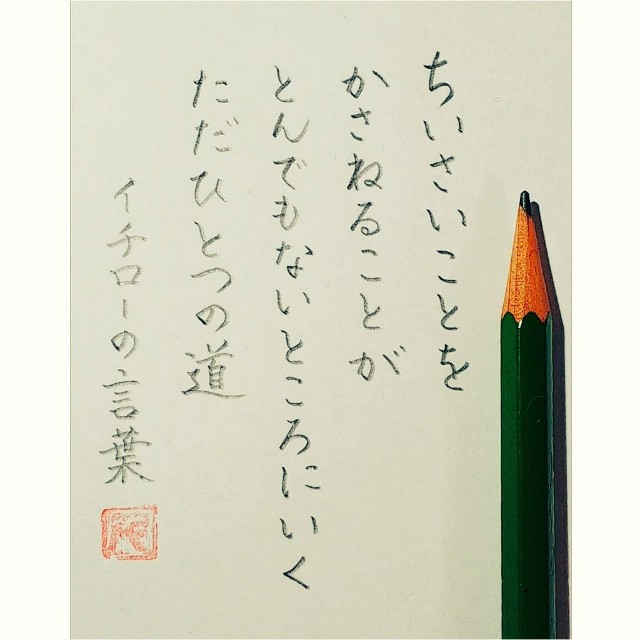 ちいさいことを
かさねることが
とんでもないところにいく
ただひとつの道
イチローの言葉